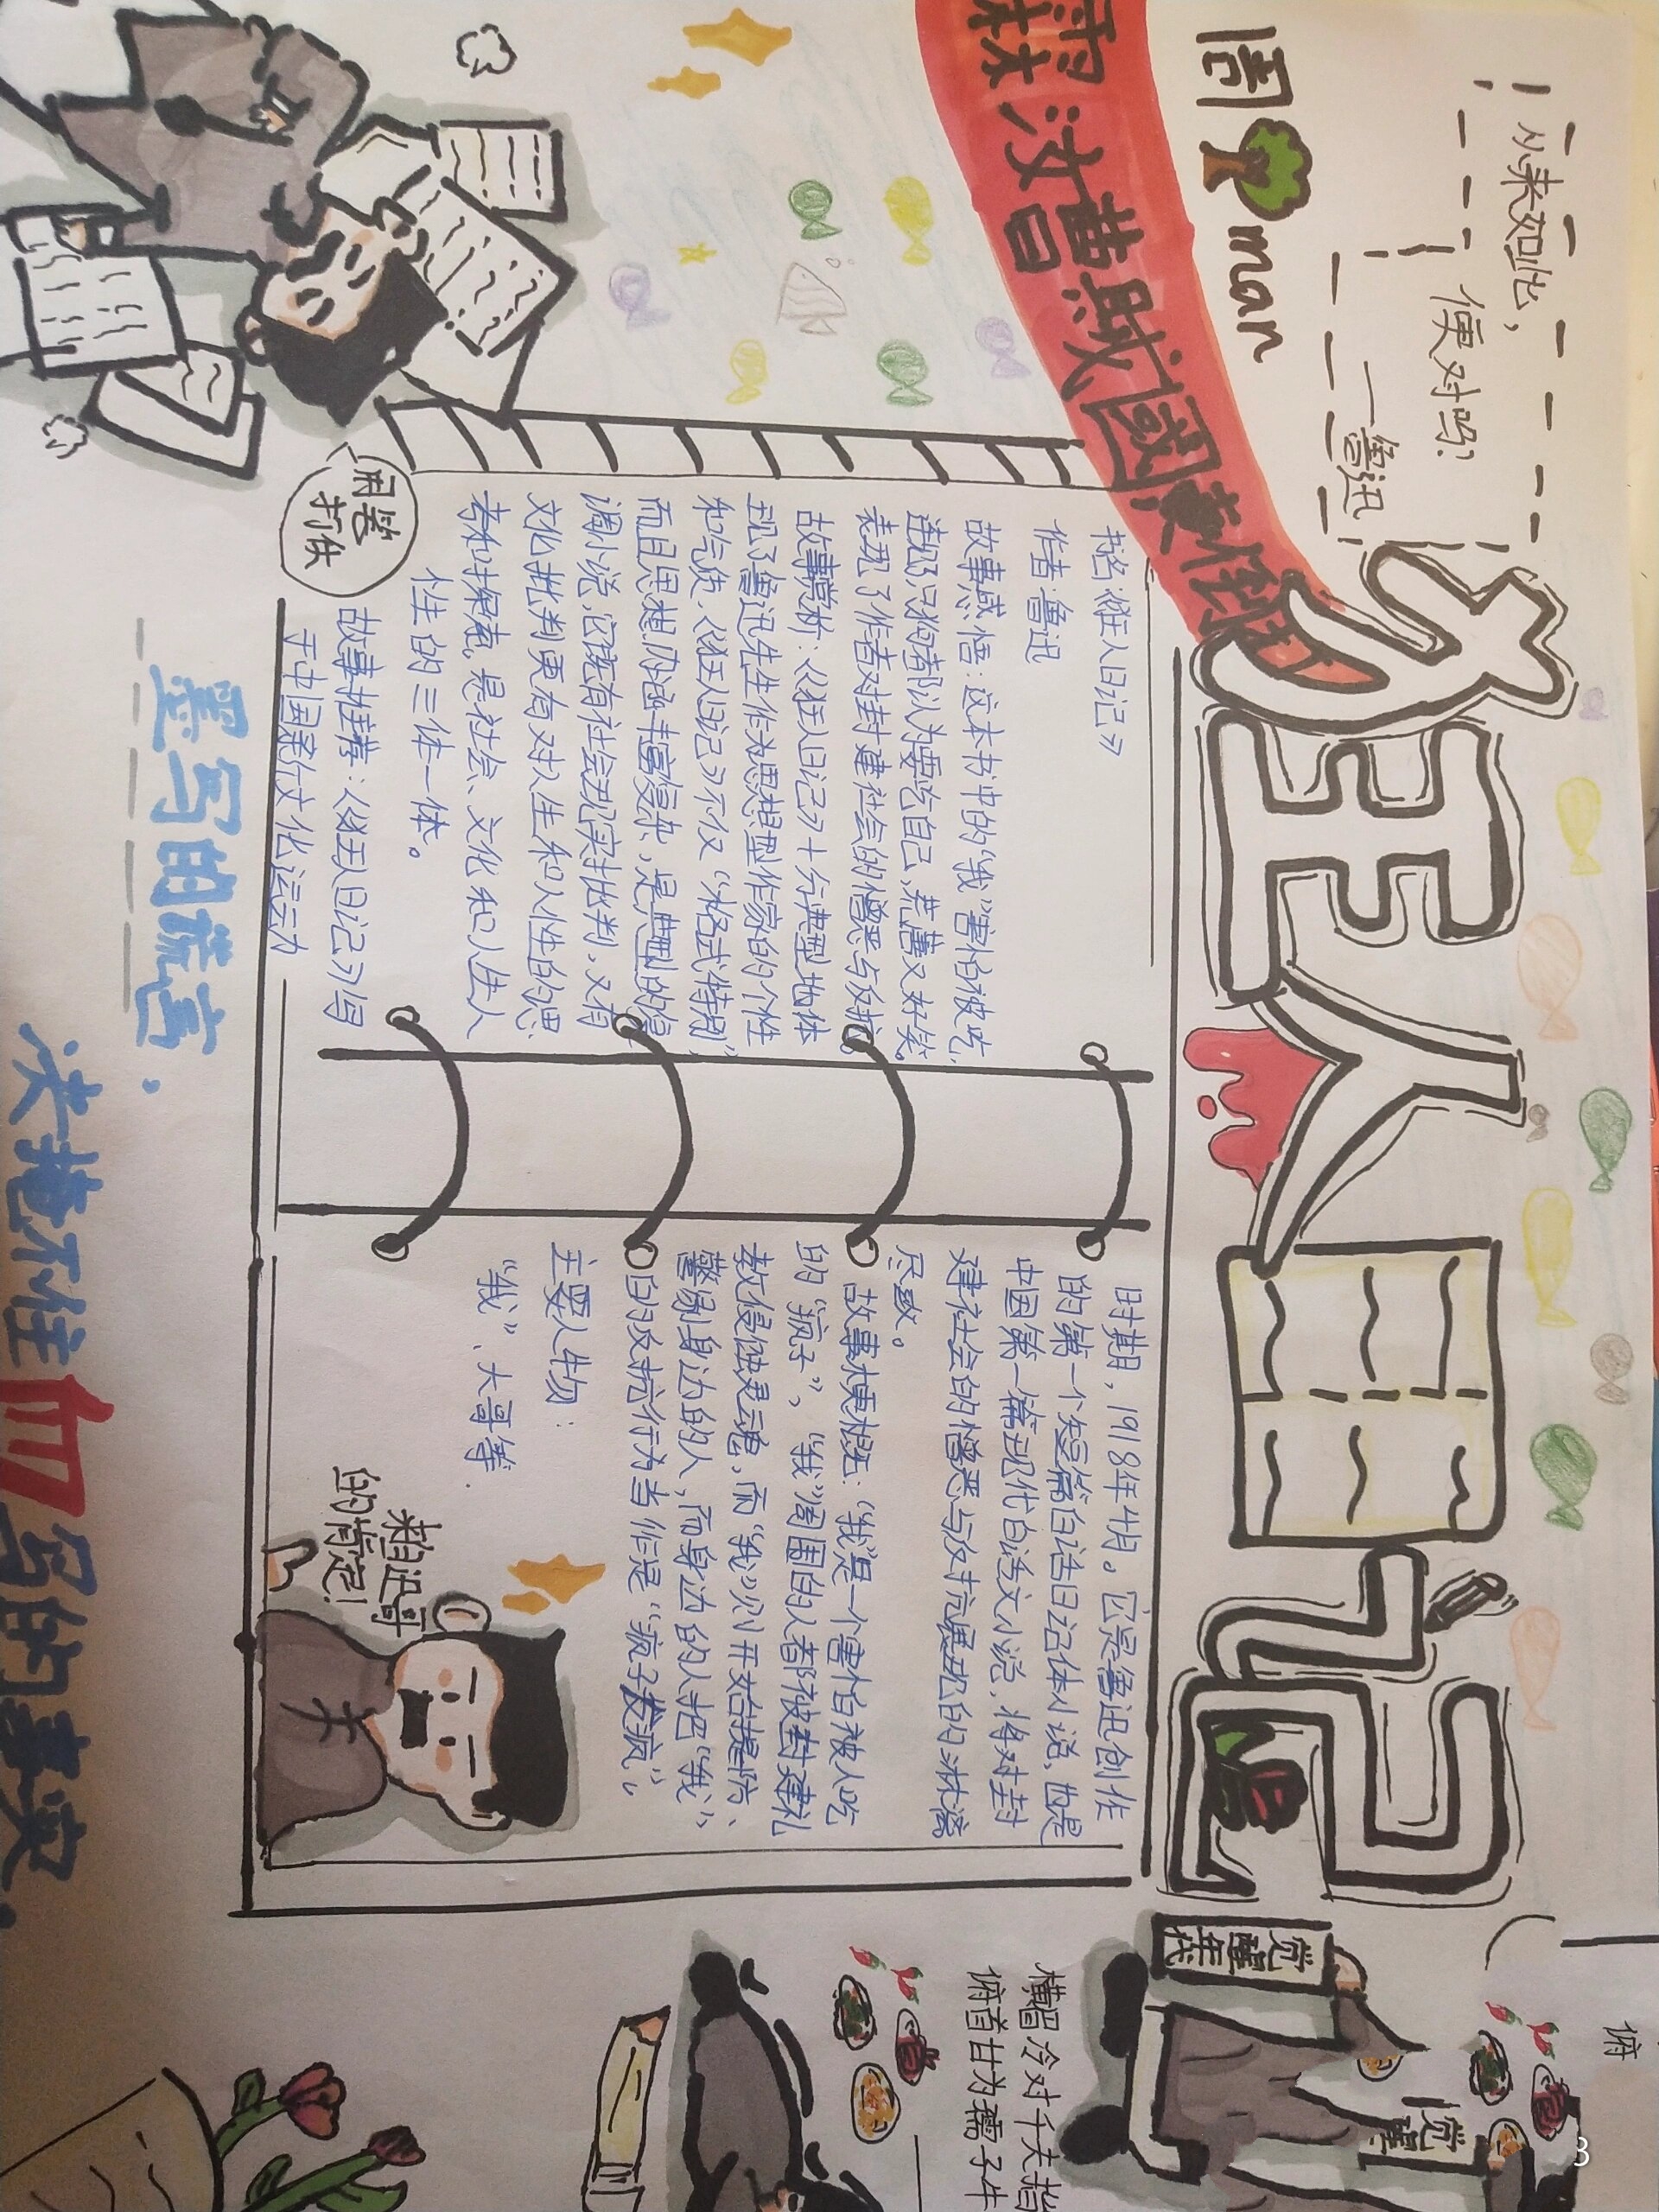 从来如此，
便对吗？
——鲁迅
周man
霖汝昌
賣國賊曹
狂人日记
书名：《狂人日记》
作者：鲁迅
故事感悟：这本书中的“我”害怕被吃，
连那只狗都认为要吃自己，荒唐又好笑。
表现了作者对封建社会的憎恶与反抗。
故事赏析：《狂人日记》十分典型地体
现了鲁迅先生作为思想型作家的个性
和气质、《狂人日记》不仅“格式特别”，
而且思想内涵丰富复杂，是典型的复
调小说，它既有社会现实批判，又有
文化批判更有对人生和人性的思
考和探索，是社会、文化和人生人
性的三体一体。
故事推荐：《狂人日记》写
于中国新文化运动
时期，1918年4月。它是鲁迅创作
的第一个短篇白话日记体小说，也是
中国第一篇现代白话文小说，将对封
建社会的憎恶与反抗展现的淋漓
尽致。
故事梗概：“我”是一个害怕被人吃
的“疯子”，“我”周围的人都被封建礼
教侵蚀灵魂，而“我”则开始提防、
警惕身边的人，而身边的人把“我”
的反抗行为当作是“疯子发疯”。
主要人物：
“我”、大哥等.
用笔
打伏
来自迅哥
的肯定！
墨写的谎言，
决掩不住
写的事实.
觉醒年代
觉醒
横眉冷对千夫指
俯首甘为孺子牛
俯
3